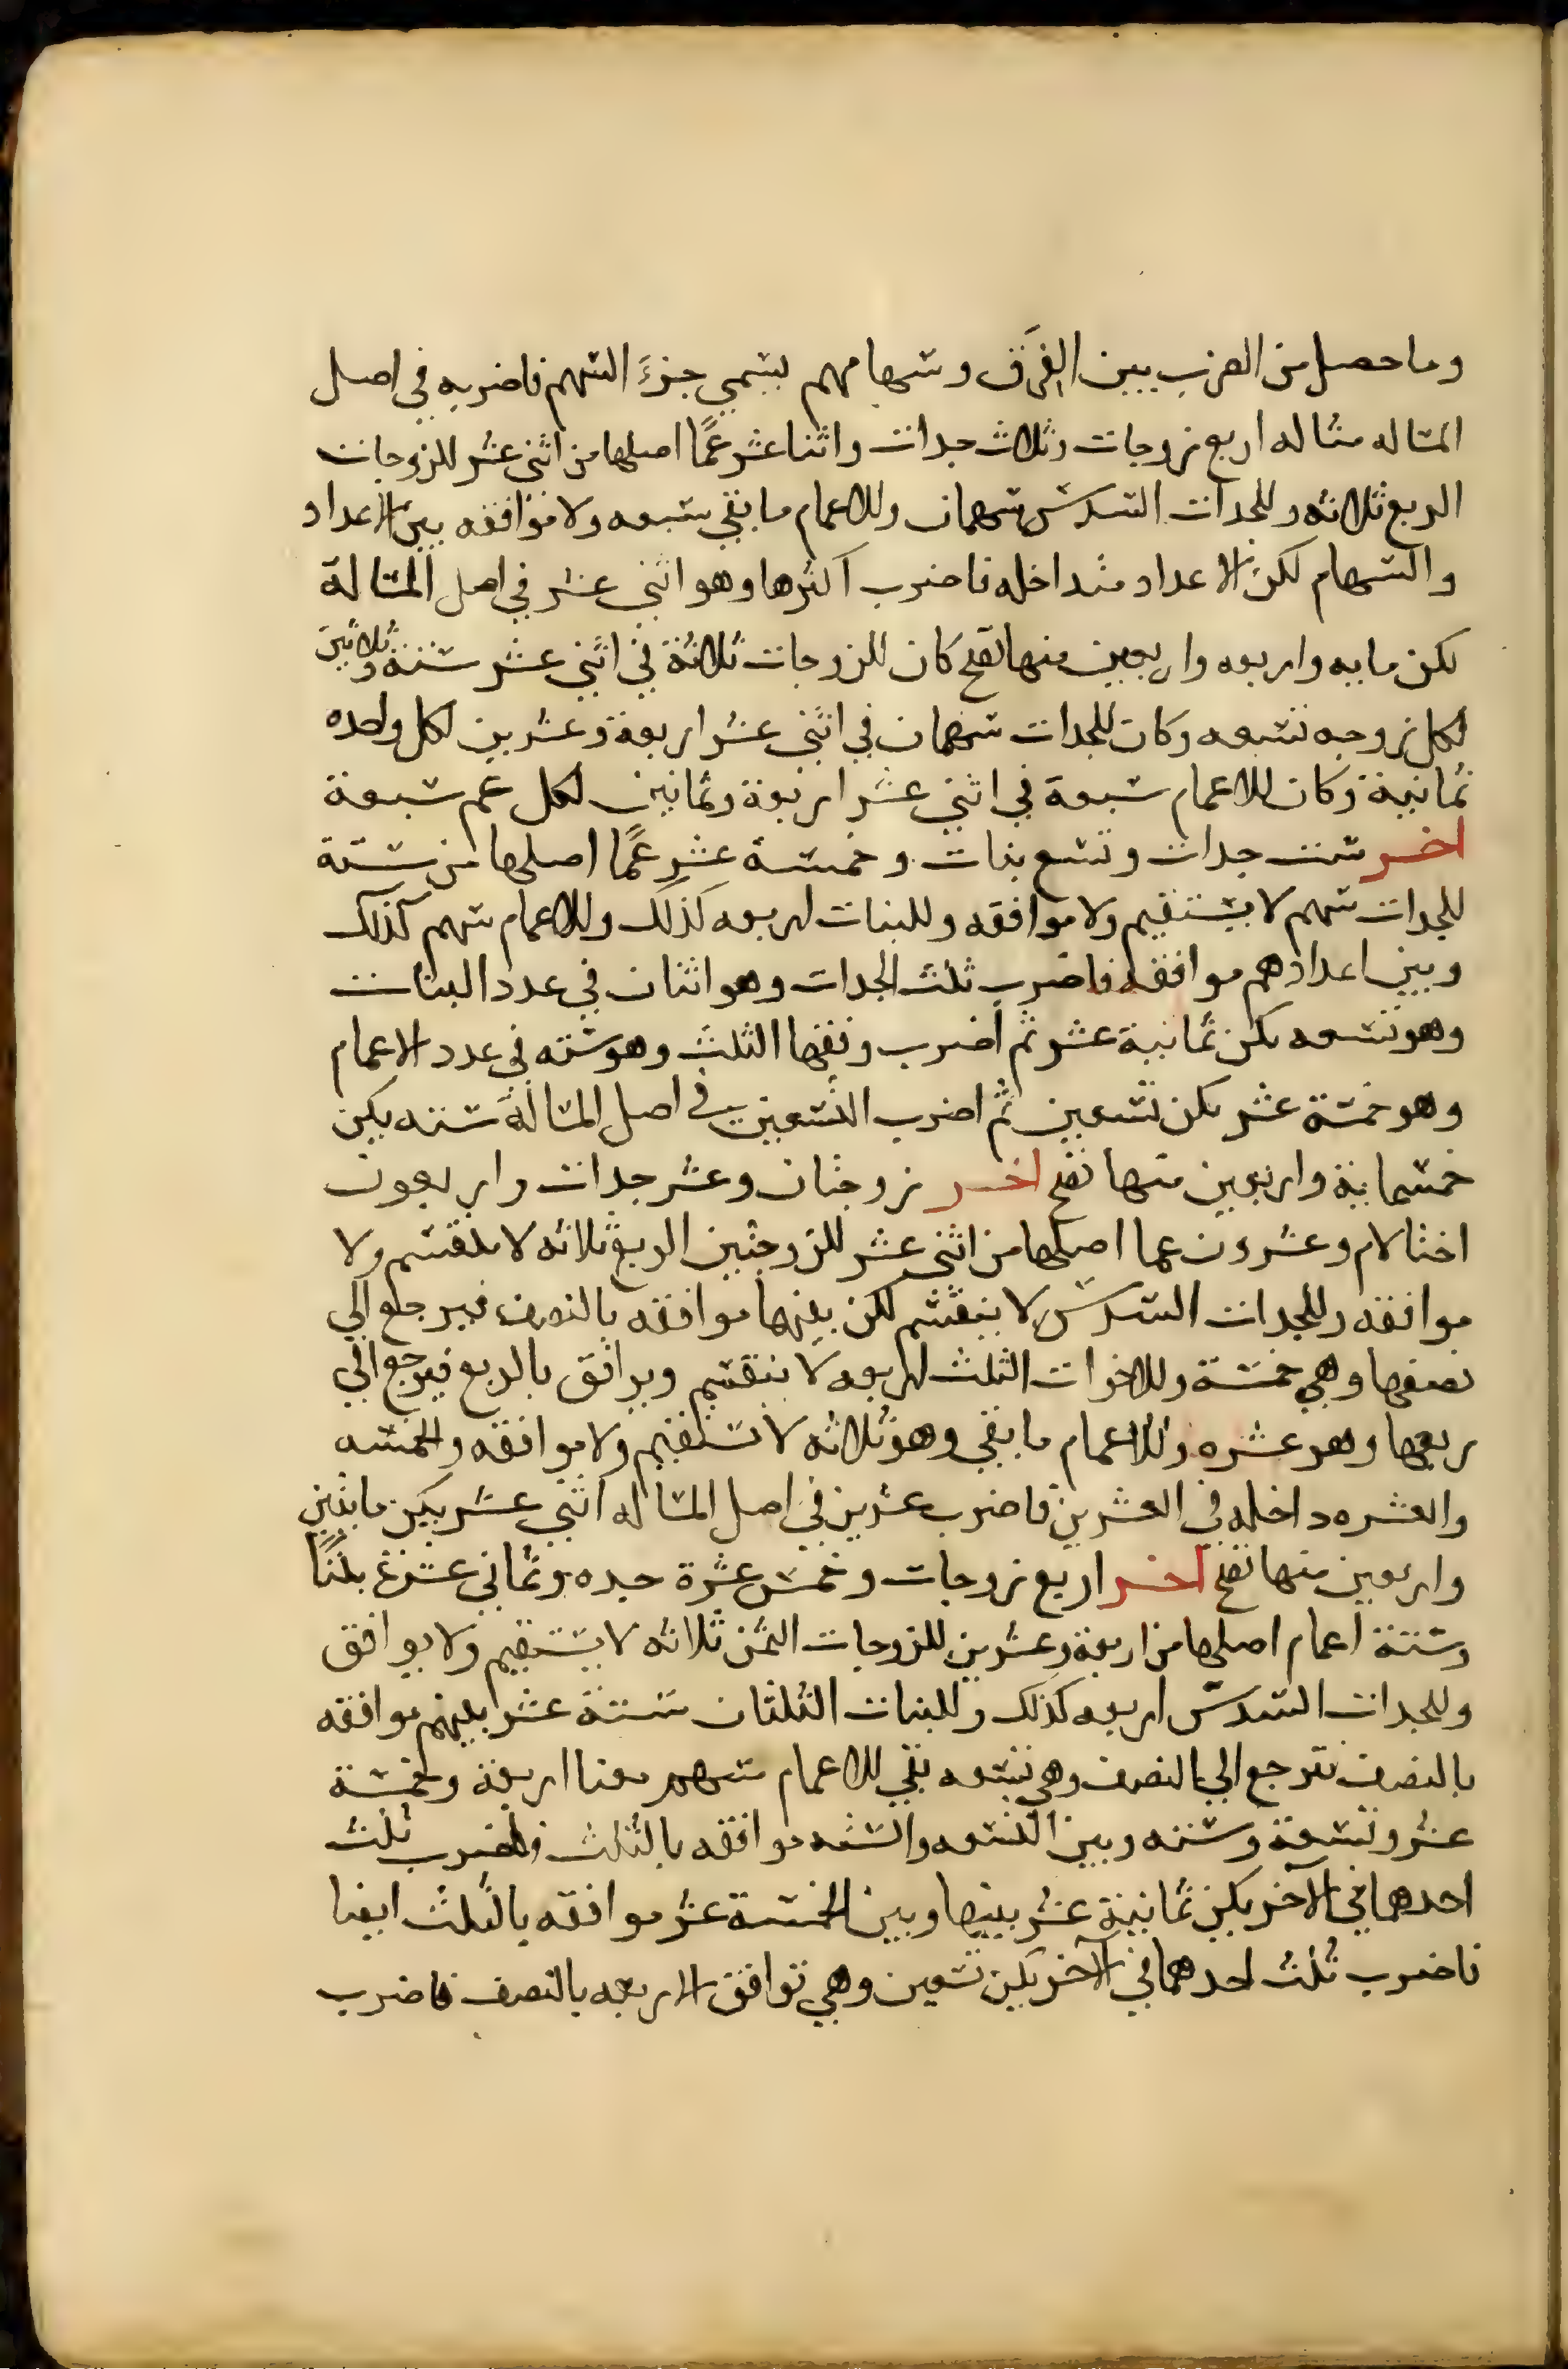 وما حصل من الضرب بين الفرق وسهامهم يسمي جزء السهم فاضربه في اصل
المساله مثاله اربع زوجات وثلاث جدات واثنا عشر عمًا اصلها من اثني عشر للزوجات
الربع ثلاثه وللجدات السدس سهمان وللاعمام ما بقي سبعه ولا موافقه بين الاعداد
والسهام لكن الاعداد متداخله فاضرب اكثرها وهو اثني عشر في اصل المسالة
تكن مايه واربعه واربعين منها تصح كان للزوجات ثلاثة في اثني عشر ستة وثلاثين
لكل زوجه تسعه وكان للجدات سهمان في اثني عشر اربعة وعشرين لكل واحده
ثمانية وكان للاعمام سبعة في اثني عشر اربعة وثمانين لكل عم سبعة
اخر ست جدات وتسع بنات وخمسة عشر عمًا اصلها من ستة
للجدات سهم لا يستقيم ولا موافقه وللبنات اربعه كذلك وللاعمام سهم كذلك
وبين اعدادهم موافقه فاضرب ثلث الجدات وهو اثنان في عدد البنات
وهو تسعه تكن ثمانية عشر ثم اضرب وفقها الثلث وهو سته في عدد الاعمام
وهو خمسة عشر تكن تسعين ثم اضرب التسعين في اصل المسالة سته يكن
خمسماية واربعين منها تصح اخر زوجتان وعشر جدات واربعون
اختا لام وعشرون عما اصلها من اثني عشر للزوجتين الربع ثلاثه لا ينقسم ولا
موافقه وللجدات السدس لا ينقسم لكن بينها موافقه بالنصف فيرجع الي
نصفها وهي خمسة وللاخوات الثلث اربعه لا ينقسم ويوافق بالربع فيرجع الي
ربعها وهو عشره وللاعمام ما بقي وهو ثلاثه لا تستقيم ولا موافقه والخمسه
والعشره داخله في العشرين فاضرب عشرين في اصل المساله اثني عشر يكن مايتين
واربعين منها تصح اخر اربع زوجات وخمس عشرة جده وثماني عشرة بنتًا
وستة اعمام اصلها من اربعة وعشرين للزوجات الثمن ثلاثه لا يستقيم ولا يوافق
وللجدات السدس اربعه كذلك وللبنات الثلثان ستة عشر بينهم موافقه
بالنصف ترجع الي النصف وهي تسعه بقي للاعمام سهم معنا اربعة وخمسة
عشر وتسعة وسته وبين التسعه والسته موافقه بالثلث فاضرب ثلث
احدهما في الآخر يكن ثمانية عشر بينها وبين الخمسة عشر موافقه بالثلث ايضا
فاضرب ثلث احدهما في الآخر يكن تسعين وهي توافق الاربعه بالنصف فاضرب